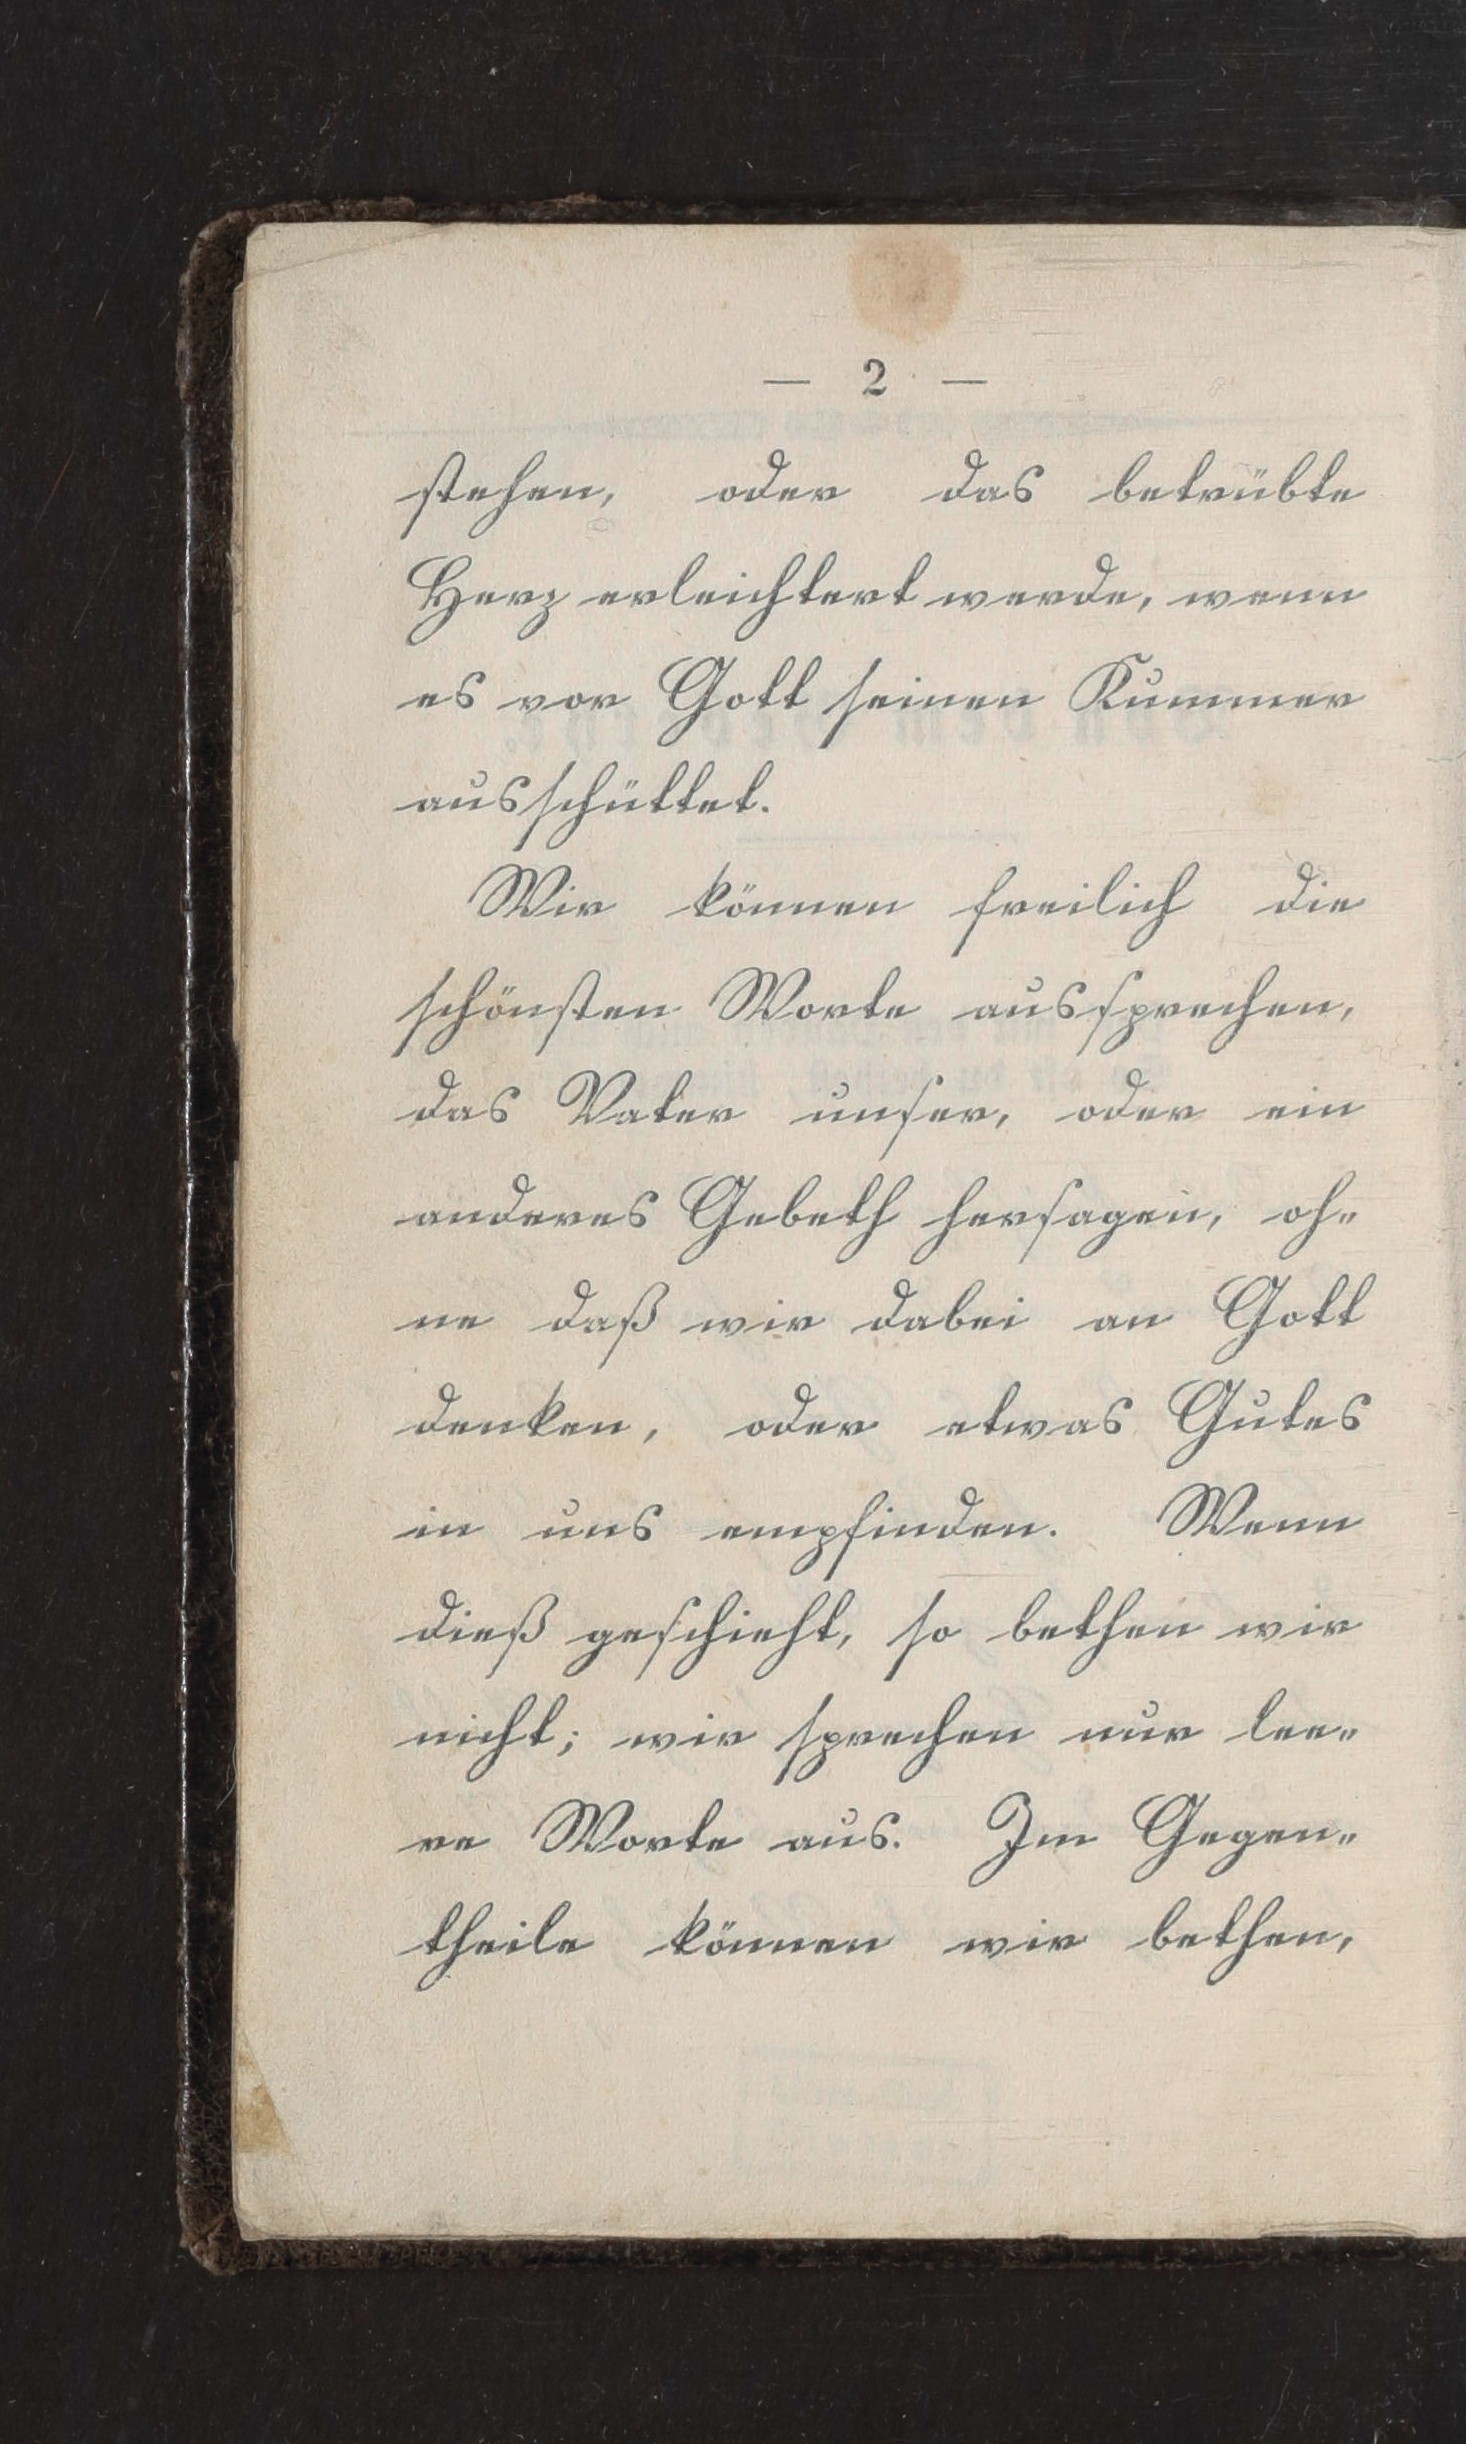 — 2 —
stehen, oder das betrübte
Herz erleichtert werde, wenn
es vor Gott seinen Kummer
ausschüttet.
Wir können freilich die
schönsten Worte aussprechen,
das Vater unser, oder ein
anderes Gebeth hersagen, oh„
ne daß wir dabei an Gott
denken, oder etwas Gutes
in uns empfinden. Wenn
dieß geschieht, so bethen wir
nicht; wir sprechen nur lee„
re Worte aus. Im Gegen„
theile können wir bethen,